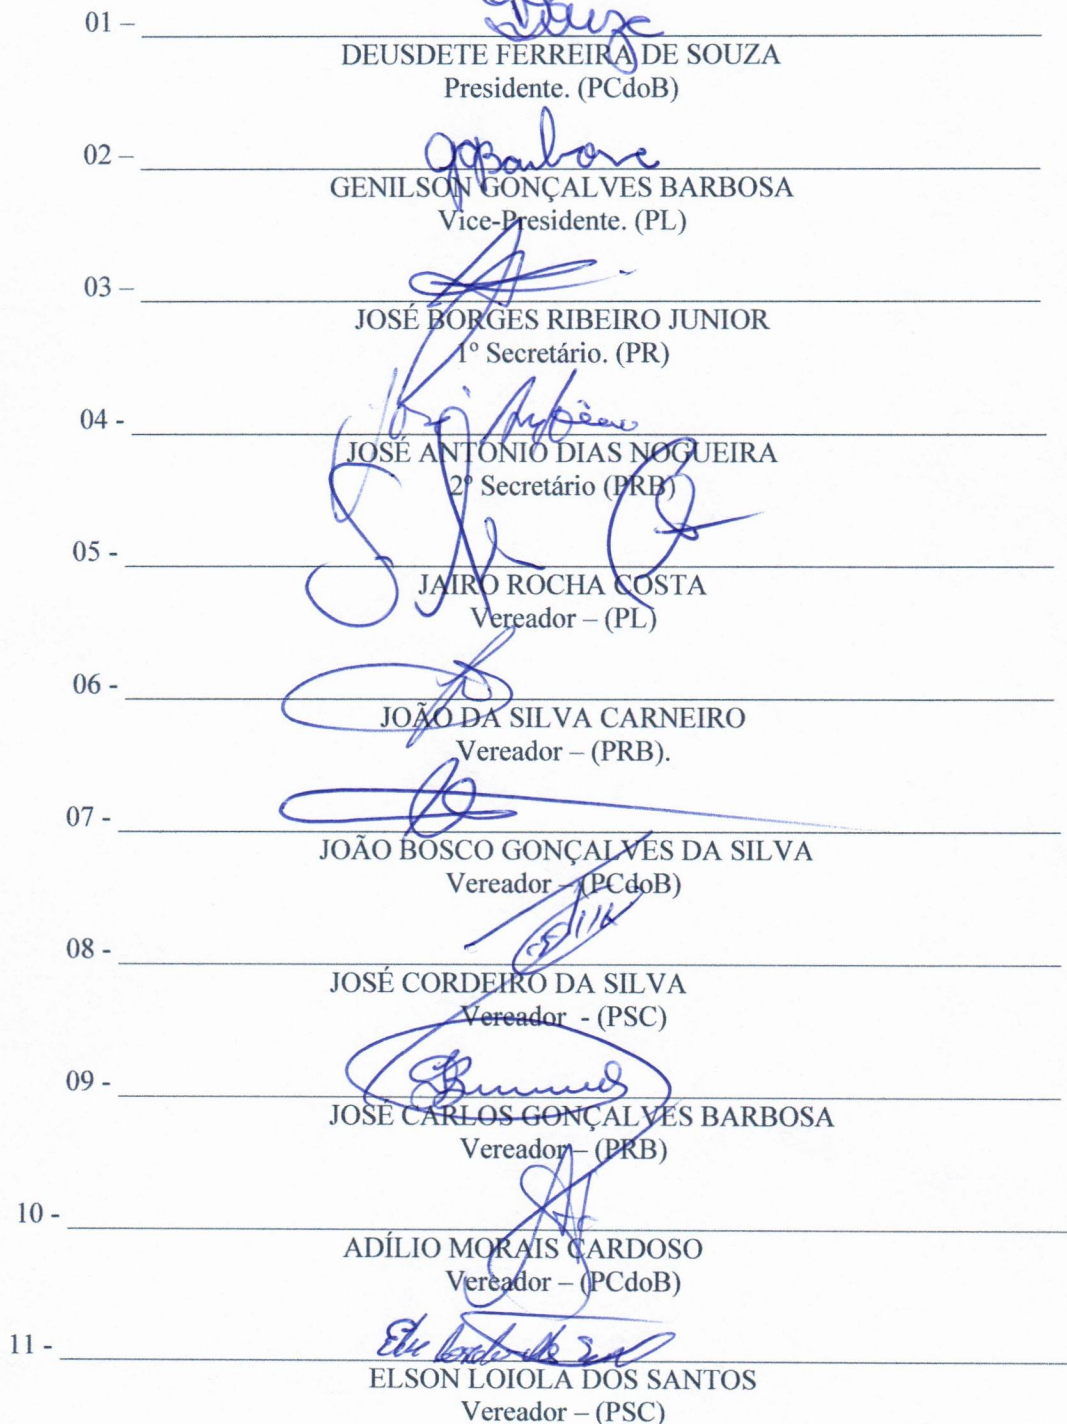 01 –
DEUSDETE FERREIRA DE SOUZA
Presidente. (PCdoB)
02 –
GENILSON GONÇALVES BARBOSA
Vice-Presidente. (PL)
03 –
JOSÉ BORGES RIBEIRO JUNIOR
1º Secretário. (PR)
04 -
JOSÉ ANTONIO DIAS NOGUEIRA
2º Secretário (PRB)
05 -
JAIRO ROCHA COSTA
Vereador – (PL)
06 -
JOÃO DA SILVA CARNEIRO
Vereador – (PRB).
07 -
JOÃO BOSCO GONÇALVES DA SILVA
Vereador – (PCdoB)
08 -
JOSÉ CORDEIRO DA SILVA
Vereador - (PSC)
09 -
JOSÉ CARLOS GONÇALVES BARBOSA
Vereador – (PRB)
10 -
ADÍLIO MORAIS CARDOSO
Vereador – (PCdoB)
11 -
ELSON LOIOLA DOS SANTOS
Vereador – (PSC)